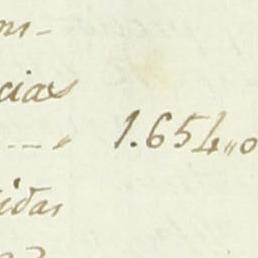 cias
1.654,,0
idas